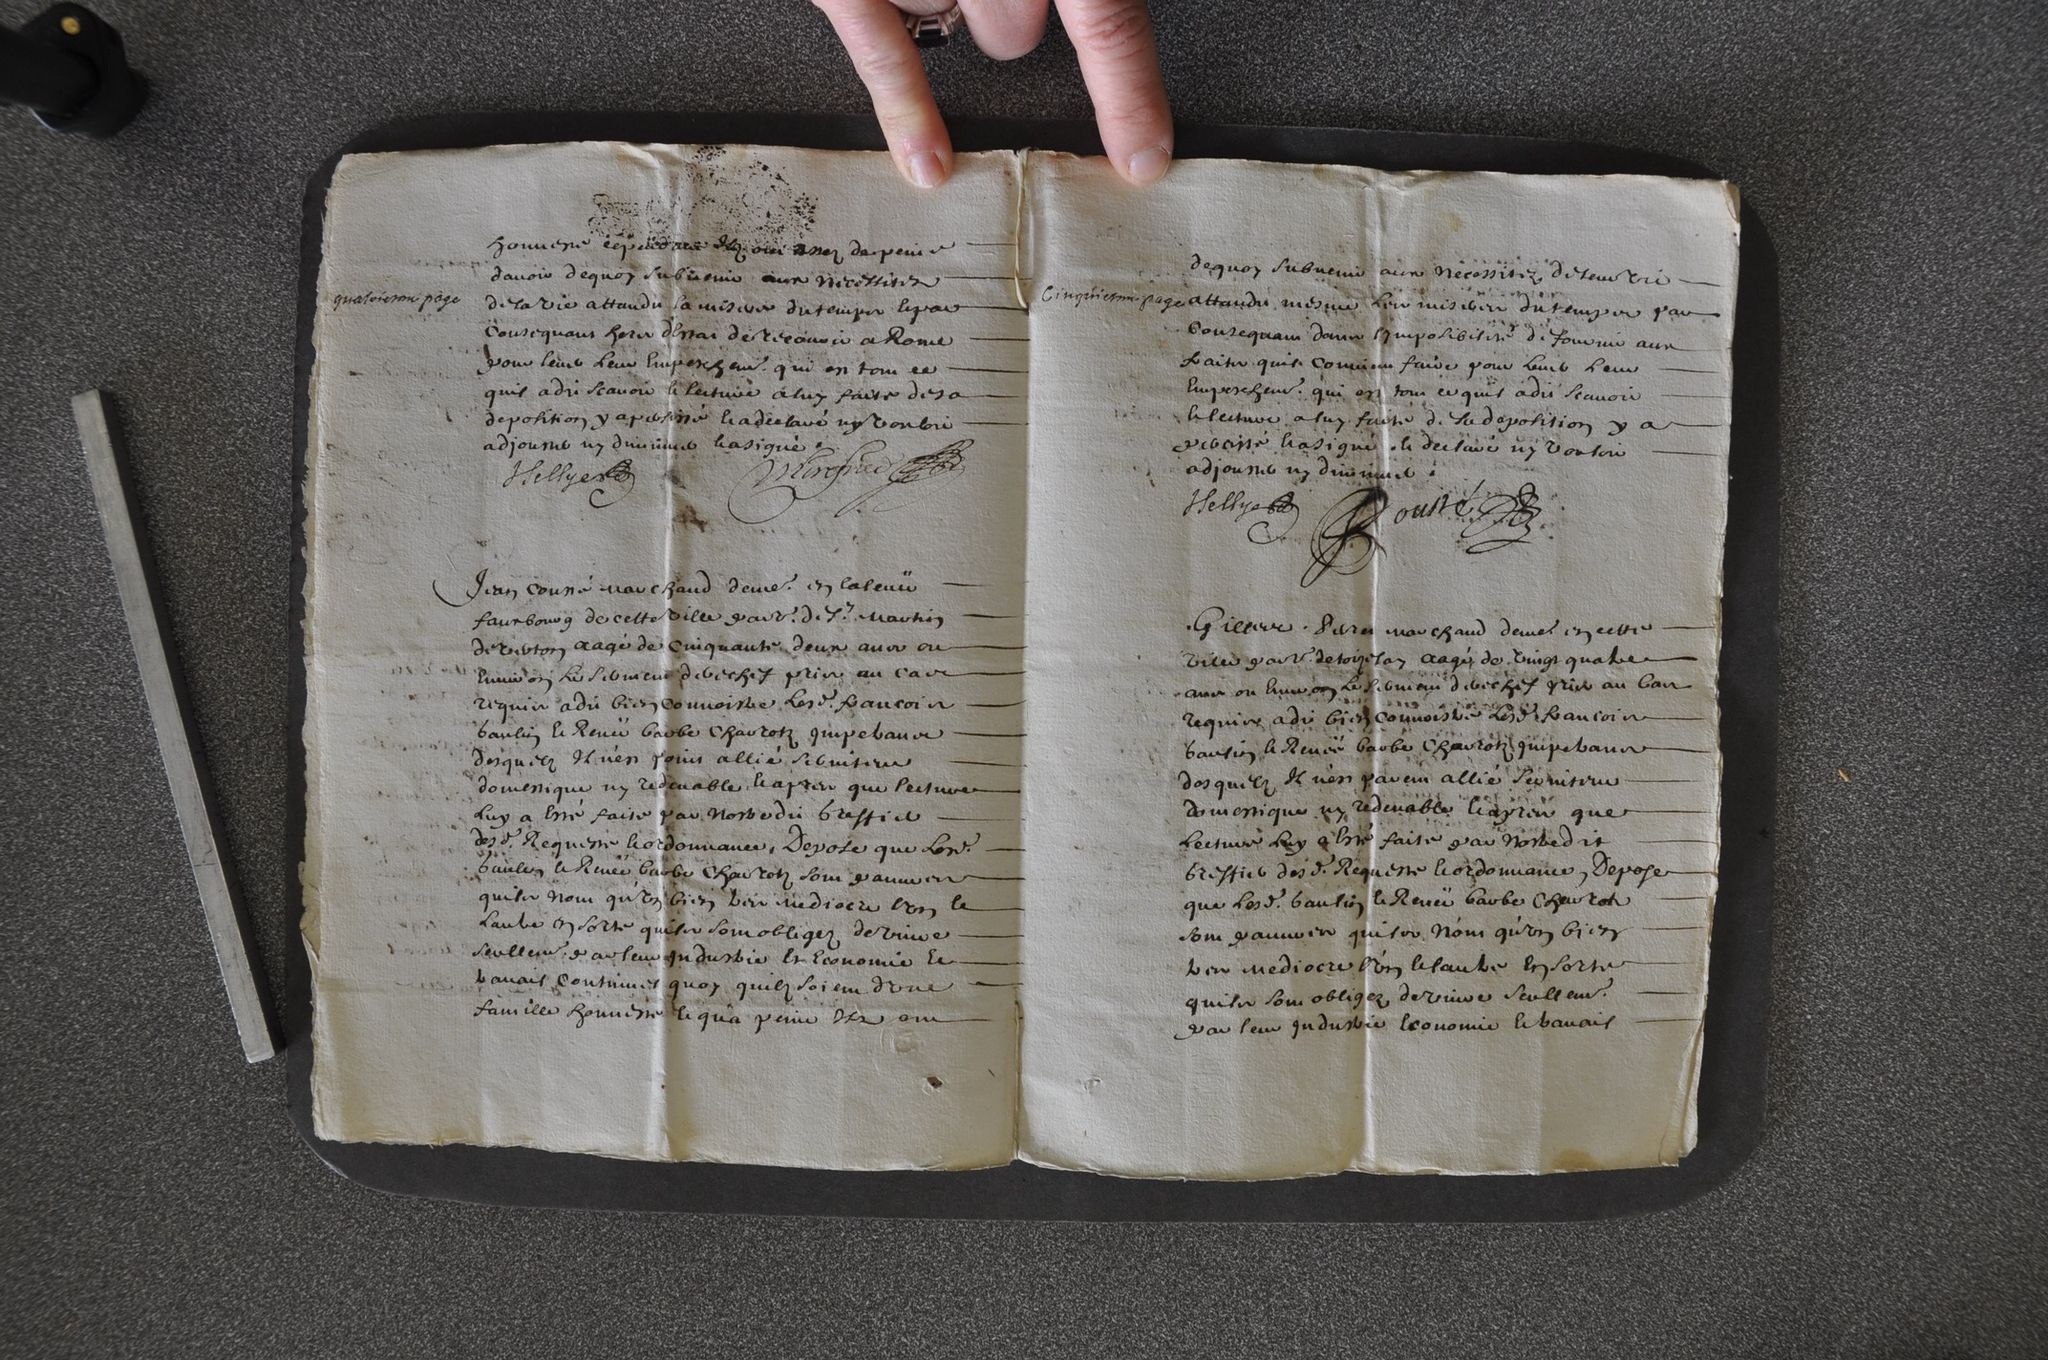 quatriesme page
honneste cependant Ilz ont assez de peine
davoir dequoy subvenir aux necessitez
de la vie attandu la misere du temps et par
Consequant hors destat de recourir a Rome
pour leur empeschemt. qui est tout ce
quil a dit scavoir et lecture a luy faite de sa
deposition y a persisté et a declaré ny vouloir
adjouster ny diminuer et a signé.
Hellyes
Jean Cousté marchand demt. en
faubourg de cette ville parr. de St. Martin
de vertou aagé de cinquante deux ans ou
Environ le serment de rechef pris au cas
requis a dit bien connoistre lesd. francois
baulin et Renée barbe Charrotz impetrans
desquelz Il nest point allié serviteur
domestique ny redevable et apres que lecture
luy a esté faite par nostredit Greffier
desd. Requeste et ordonnance, Depose que lesd.
baulin et Renée barbe Charrotz sont pauvres
quilz nont qu'un bien tres mediocre l'un et
lautre en sorte quilz sont obligez de vivre
seullemt. par leur Industrie et Economie et
travail Continuel quoy quilz soient d'une
famille honneste et qua peine Ilz ont
Cinquiesme page
dequoy subvenir aux necessitez de leur vie
attandu mesme la misere du temps par
Consequant dans l'Imposibilité de fournir aux
fraits quil Convient faire pour leur
Empeschemt. qui est tout ce quil a dit scavoir
et lecture a luy faite de sa deposition y a
persisté et a signé et declaré ny vouloir
adjouster ny diminuer.
Hellyes Cousté
marchand demt. en cette
ville parr. de aagé de vingt quatre
ans ou Environ le serment de rechef pris au cas
requis a dit bien connoistre lesd. francois
baulin et Renée barbe Charrotz impetrans
desquelz Il nest parent allié serviteur
domestique ny redevable et apres que
lecture luy a esté faite par nostredit
Greffier desd. Requeste et ordonnance, Depose
que lesd. baulin et Renée barbe Charrotz
sont pauvres quilz nont qu'un bien
tres mediocre l'un et lautre en sorte
quilz sont obligez de vivre seullemt.
par leur Industrie Economie et travail